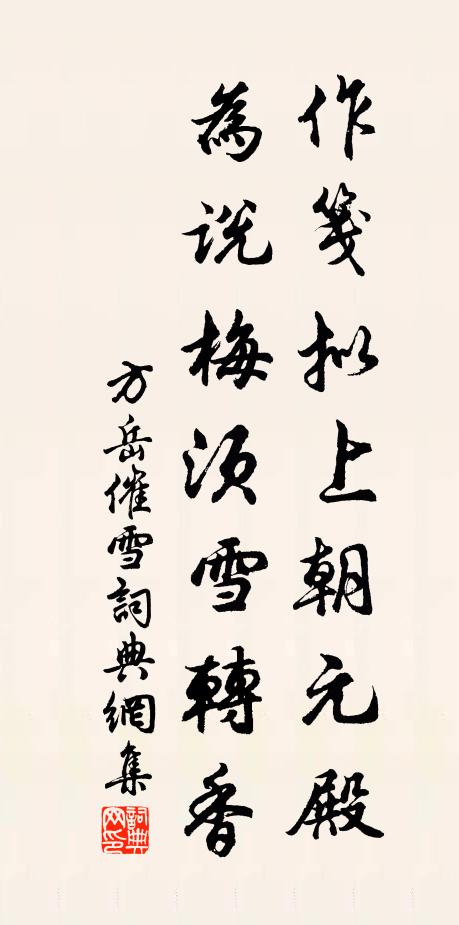 作箋拟上朝元殿
為説梅須雪轉香
方岳催雪詞典網集
詞典网印